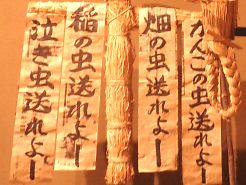 かんこの虫送れよー
畑の虫送れよー
稲の虫送れよー
泣き虫送れよー